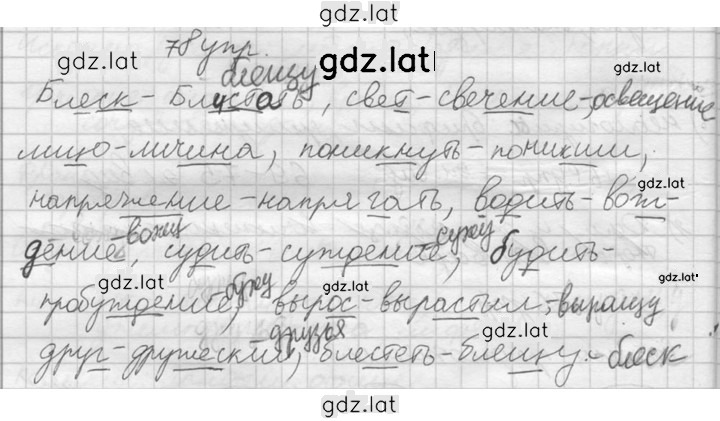 gdz.lat
78 упр.
gdz.lat
gdz.lat
gdz.lat
блещу
Блеск - Блистать, свет - свечение - освещение
лицо - личина, поникнуть - поникший,
gdz.lat
напряжение - напрягать, водить - вож-
дение - вожу, судить - суждение - сужу, будить -
gdz.lat
пробуждение, - бужу вырос - вырастил, - выращу
gdz.lat
- друзья
друг - дружеский, блестеть - блещу - блеск
gdz.lat